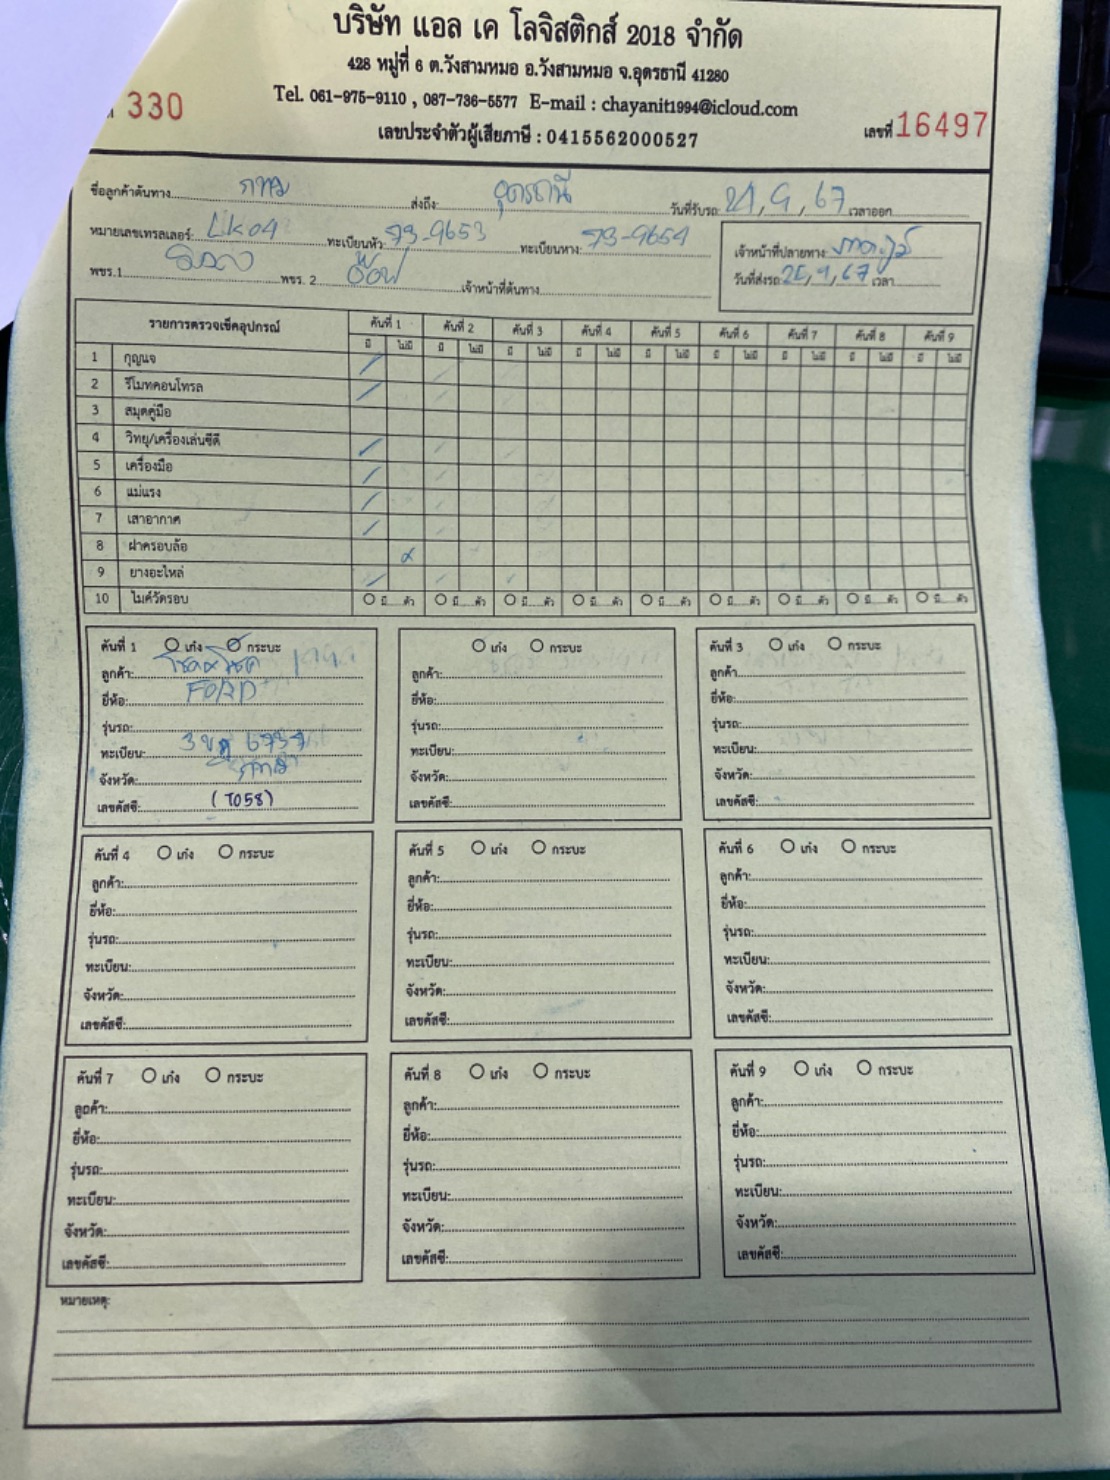 บริษัท แอล เค โลจิสติกส์ 2018 จำกัด
428 หมู่ที่ 6 ต.วังสามหมอ อ.วังสามหมอ จ.อุดรธานี 41280
Tel. 061-975-9110 , 087-736-5577 E-mail : chayanit1994@icloud.com
330 เลขประจำตัวผู้เสียภาษี : 0415562000527 เลขที่ 16497
ชื่อลูกค้าต้นทาง กทม ส่งถึง อุดรธานี วันที่รับรถ 21, 9, 67 เวลาออก
หมายเลขเทรลเลอร์: LK04 ทะเบียนหัว 73-9653 ทะเบียนหาง: 73-9654 เจ้าหน้าที่ปลายทาง:
พขร.1 พขร. 2 อ๊อฟ เจ้าหน้าที่ต้นทาง วันที่ส่งรถ , 9, 67 เวลา
รายการตรวจเช็คอุปกรณ์ คันที่ 1 คันที่ 2 คันที่ 3 คันที่ 4 คันที่ 5 คันที่ 6 คันที่ 7 คันที่ 8 คันที่ 9
มี ไม่มี มี ไม่มี มี ไม่มี มี ไม่มี มี ไม่มี มี ไม่มี มี ไม่มี มี ไม่มี มี ไม่มี
1 กุญแจ
2 รีโมทคอนโทรล
3 สมุดคู่มือ
4 วิทยุ/เครื่องเล่นซีดี
5 เครื่องมือ
6 แม่แรง
7 เสาอากาศ
8 ฝาครอบล้อ
9 ยางอะไหล่
10 ไมค์วัดรอบ มี ตัว มี ตัว มี ตัว มี ตัว มี ตัว มี ตัว มี ตัว มี ตัว มี ตัว
คันที่ 1 เก๋ง กระบะ
ลูกค้า:
ยี่ห้อ: FORD
รุ่นรถ:
ทะเบียน: 6737
จังหวัด: กทม
เลขคัสซี: (T058)
เก๋ง กระบะ
ลูกค้า:
ยี่ห้อ:
รุ่นรถ:
ทะเบียน:
จังหวัด:
เลขคัสซี:
คันที่ 3 เก๋ง กระบะ
ลูกค้า:
ยี่ห้อ:
รุ่นรถ:
ทะเบียน:
จังหวัด:
เลขคัสซี:
คันที่ 4 เก๋ง กระบะ
ลูกค้า:
ยี่ห้อ:
รุ่นรถ:
ทะเบียน:
จังหวัด:
เลขคัสซี:
คันที่ 5 เก๋ง กระบะ
ลูกค้า:
ยี่ห้อ:
รุ่นรถ:
ทะเบียน:
จังหวัด:
เลขคัสซี:
คันที่ 6 เก๋ง กระบะ
ลูกค้า:
ยี่ห้อ:
รุ่นรถ:
ทะเบียน:
จังหวัด:
เลขคัสซี:
คันที่ 7 เก๋ง กระบะ
ลูกค้า:
ยี่ห้อ:
รุ่นรถ:
ทะเบียน:
จังหวัด:
เลขคัสซี:
คันที่ 8 เก๋ง กระบะ
ลูกค้า:
ยี่ห้อ:
รุ่นรถ:
ทะเบียน:
จังหวัด:
เลขคัสซี:
คันที่ 9 เก๋ง กระบะ
ลูกค้า:
ยี่ห้อ:
รุ่นรถ:
ทะเบียน:
จังหวัด:
เลขคัสซี:
หมายเหตุ: